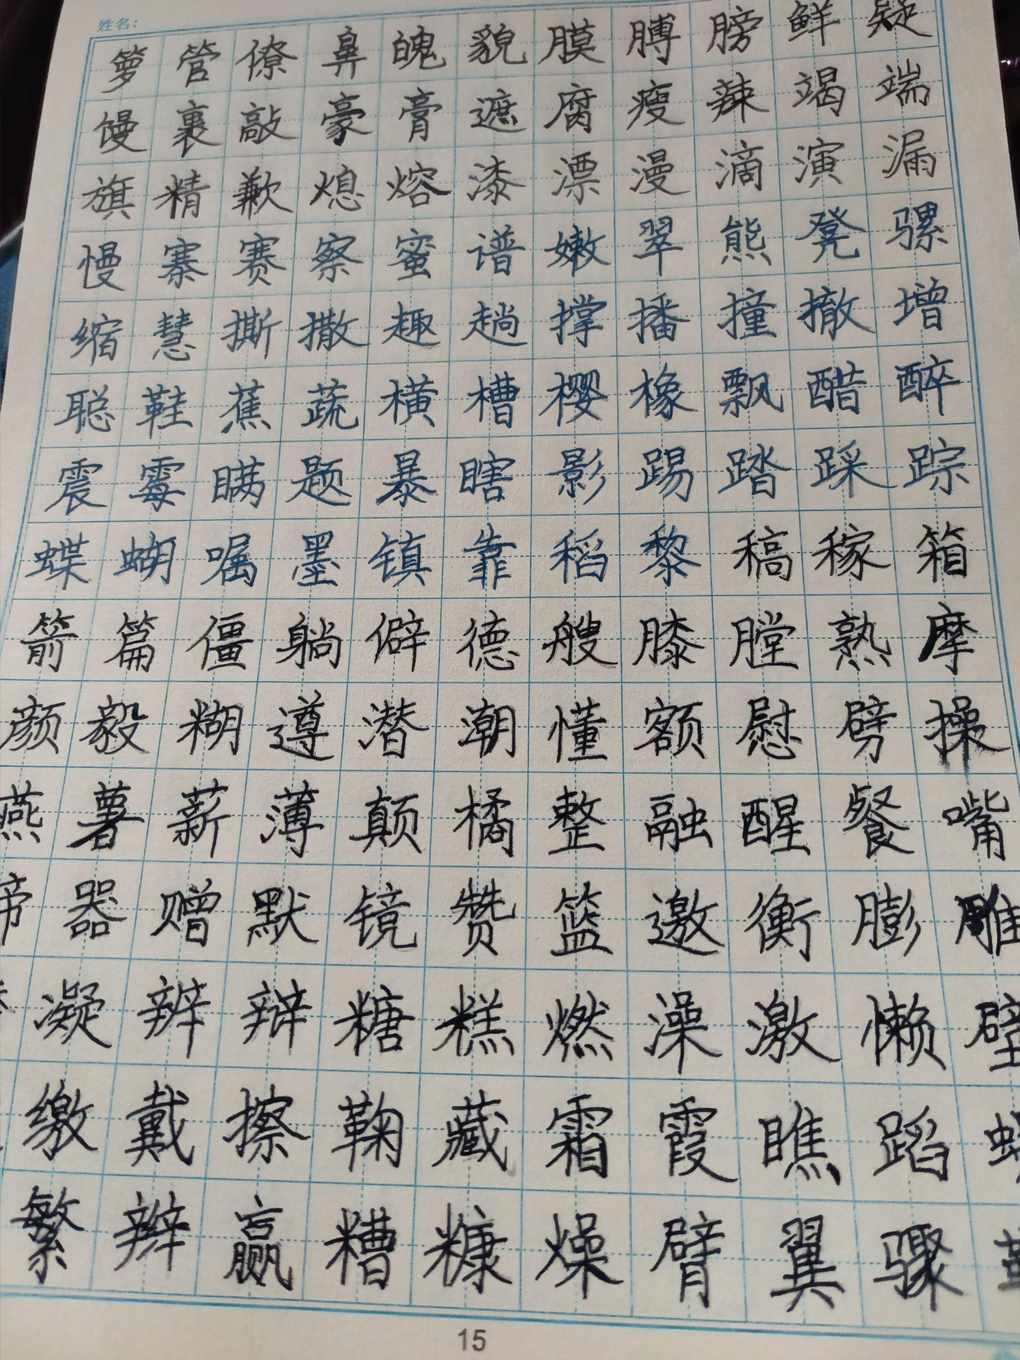 姓名:
箩管僚鼻魄貌膜膊膀鲜疑
馒裹敲豪膏遮腐瘦辣竭端
旗精歉熄熔漆漂漫滴演漏
慢寨赛察蜜谱嫩翠熊凳骡
缩慧撕撒趣趟撑播撞撤增
聪鞋蕉蔬横槽樱橡飘醋醉
震霉瞒题暴瞎影踢踏踩踪
蝶蝴嘱墨镇靠稻黎稿稼箱
箭篇僵躺僻德艘膝膛熟摩
颜毅糊遵潜潮懂额慰劈操
燕薯薪薄颠橘整融醒餐嘴
器赠默镜赞篮邀衡膨雕
凝辨辩糖糕燃澡激懒壁
缴戴擦鞠藏霜霞瞧蹈
繁辫赢糟糠燥臂翼骤
15